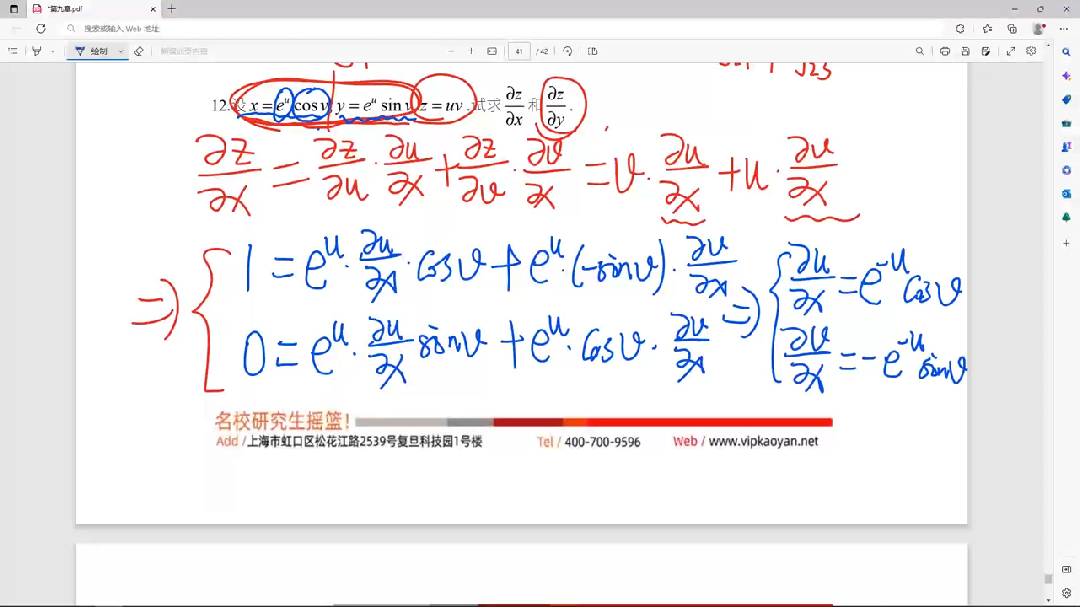 "第九章.pdf
搜索或输入 Web 地址
绘制
41 / 42
12.设 x = e^u cos v, y = e^u sin v, z = uv. 试求 ∂z/∂x 和 ∂z/∂y.
∂z/∂x = ∂z/∂u · ∂u/∂x + ∂z/∂v · ∂v/∂x = v · ∂u/∂x + u · ∂v/∂x
⇒ { 1 = e^u · ∂u/∂x · cos v + e^u · (-sin v) · ∂v/∂x ⇒ { ∂u/∂x = e^{-u} cos v
0 = e^u · ∂u/∂x sin v + e^u · cos v · ∂v/∂x ∂v/∂x = -e^{-u} sin v
名校研究生摇篮!
Add / 上海市虹口区松花江路2539号复旦科技园1号楼 Tel / 400-700-9596 Web / www.vipkaoyan.net